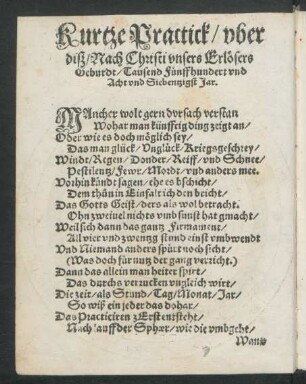 Kurtze Practick / vber
diß / Nach Christi vnsers Erlösers
Geburdt / Tausend Fünffhundert vnd
Acht vnd Siebentzigst Jar.
MAncher wolt gern vrsach verstan
Wohar man künfftig ding zeigt an /
Oder wie es doch möglich sey /
Das man glück / Vnglück / Kriegsgeschrey /
Winde / Regen / Donder / Reiff / vnd Schnee /
Pestilentz / Fewr / Mordt / vnd anders mee.
Vorhin kündt sagen / ehe es bschicht /
Dem thün in Einfalt ich den bricht.
Das Gotts Geist / ders als wol betracht.
Ohn zweiuel nichts vmb sunst hat gmacht /
Weil sich dann das gantz Firmament /
All vier vnd zwentzg stund einst vmbwendt
Vnd Niemand anders spürt noch sicht /
(Was doch für nutz der gang verricht.)
Dann das allein man heiter spirt /
Das durchs verrucken vngleich wirt /
Die zeit / als Stund / Tag / Monat / Jar /
So wiß ein jeder das dohar /
Das Practiciren z'Erst entsteht /
Nach lauff der Sphær / wie die vmbgeht /
Wann